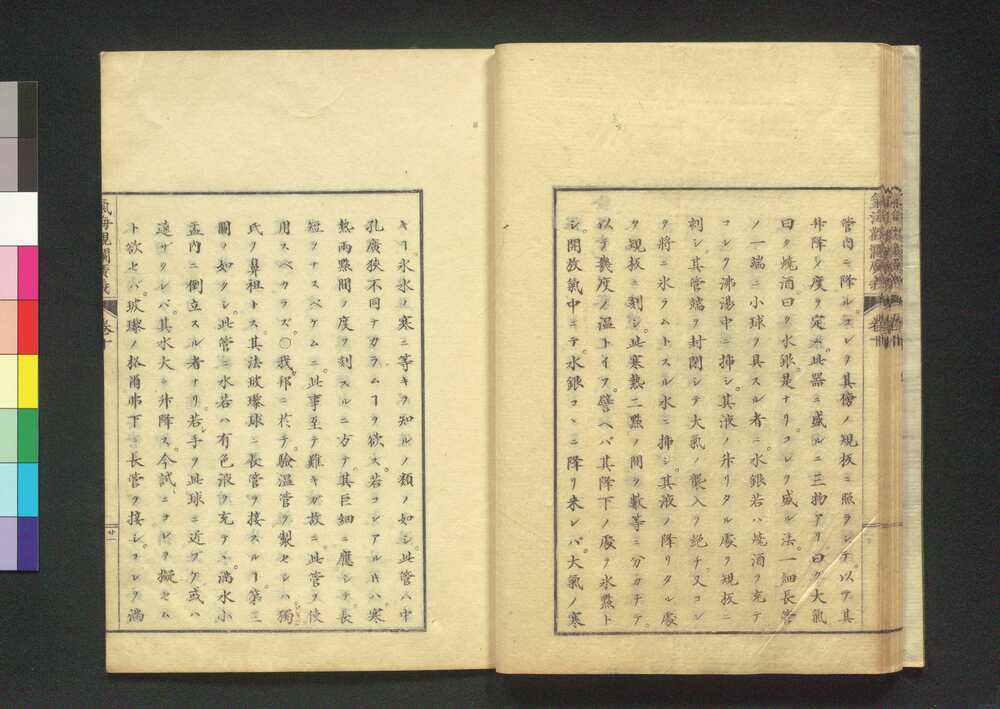 管内ニ降ル。コレヲ其傍ノ規板ニ照ラシテ。以テ其
升降ノ度ヲ定ム。此器ニ盛ルニ三物アリ曰ク大氣
曰ク焼酒曰ク水銀是ナリ。コレヲ盛ル法。一細長管
ノ一端ニ小球ヲ具スル者ニ。水銀若ハ焼酒ヲ充テ
コレヲ沸湯中ニ挿シ。其液ノ升リタル處ヲ規板ニ
刻シ。其管端ヲ封閉シテ大氣ノ襲入ヲ絶チ。又コレ
ヲ將ニ氷ラムトスル水ニ挿シ。其液ノ降リタル處
ヲ規板ニ刻シ。此寒熱二點ノ間ヲ數等ニ分カチテ。
以テ幾度ノ温トイフ。譬ヘバ其降下ノ處ヲ氷點ト
シ。開放氣中ニテ。水銀コヽニ降リ来レバ。大氣ノ寒
キヿ。氷水ノ寒ニ等キヲ知ルノ類ノ如シ。此管ハ中
孔廣狹不同ナカラムヿヲ欲ス。若コレアル𪜈ハ寒
熱兩點間ノ度ヲ刻スルニ方テ。其巨細ニ應シテ。長
短ヲナスベケムニ。此事至テ難キガ故ニ。此管ヲ使
用スベカラズ。〇我邦ニ於テ。驗温管ヲ製セシハ獨
氏ヲ鼻祖トス。其法玻瓈球ニ長管ヲ接スルヿ。第三
圖ノ如クシ。此管ニ水若ハ有色液ヲ充テヽ。満水小
盂内ニ倒立スル者ナリ。若手ヲ此球ニ近ヅケ或ハ
遠ザクレバ。其水大ニ升降ス。今試ニコレヲ擬セム
ト欲セバ。玻瓈ノ拔爾弗下ニ長管ヲ接シ。コレヲ満
氣海觀瀾廣義
卷十
廿一